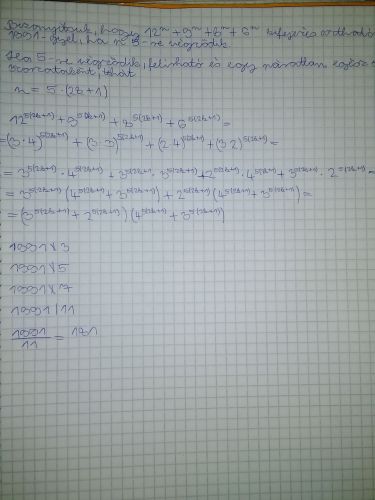 Bizonyítsuk, hogy 12ⁿ + 9ⁿ + 8ⁿ + 6ⁿ kifejezés osztható
1991-gyel, ha n 5-re végződik.
Ha 5-re végződik, felírható és egy páratlan egész
szorzataként, tehát
n = 5·(2k+1)
12^5(2k+1) + 9^5(2k+1) + 8^5(2k+1) + 6^5(2k+1) =
=(3·4)^5(2k+1) + (3·3)^5(2k+1) + (2·4)^5(2k+1) + (3·2)^5(2k+1) =
= 3^5(2k+1) · 4^5(2k+1) + 3^5(2k+1) · 3^5(2k+1) + 2^5(2k+1) · 4^5(2k+1) + 3^5(2k+1) · 2^5(2k+1) =
= 3^5(2k+1) (4^5(2k+1) + 3^5(2k+1)) + 2^5(2k+1) (4^5(2k+1) + 3^5(2k+1)) =
= (3^5(2k+1) + 2^5(2k+1)) (4^5(2k+1) + 3^5(2k+1))
1991 ∤ 3
1991 ∤ 5
1991 ∤ 7
1991 | 11
1991/11 = 181